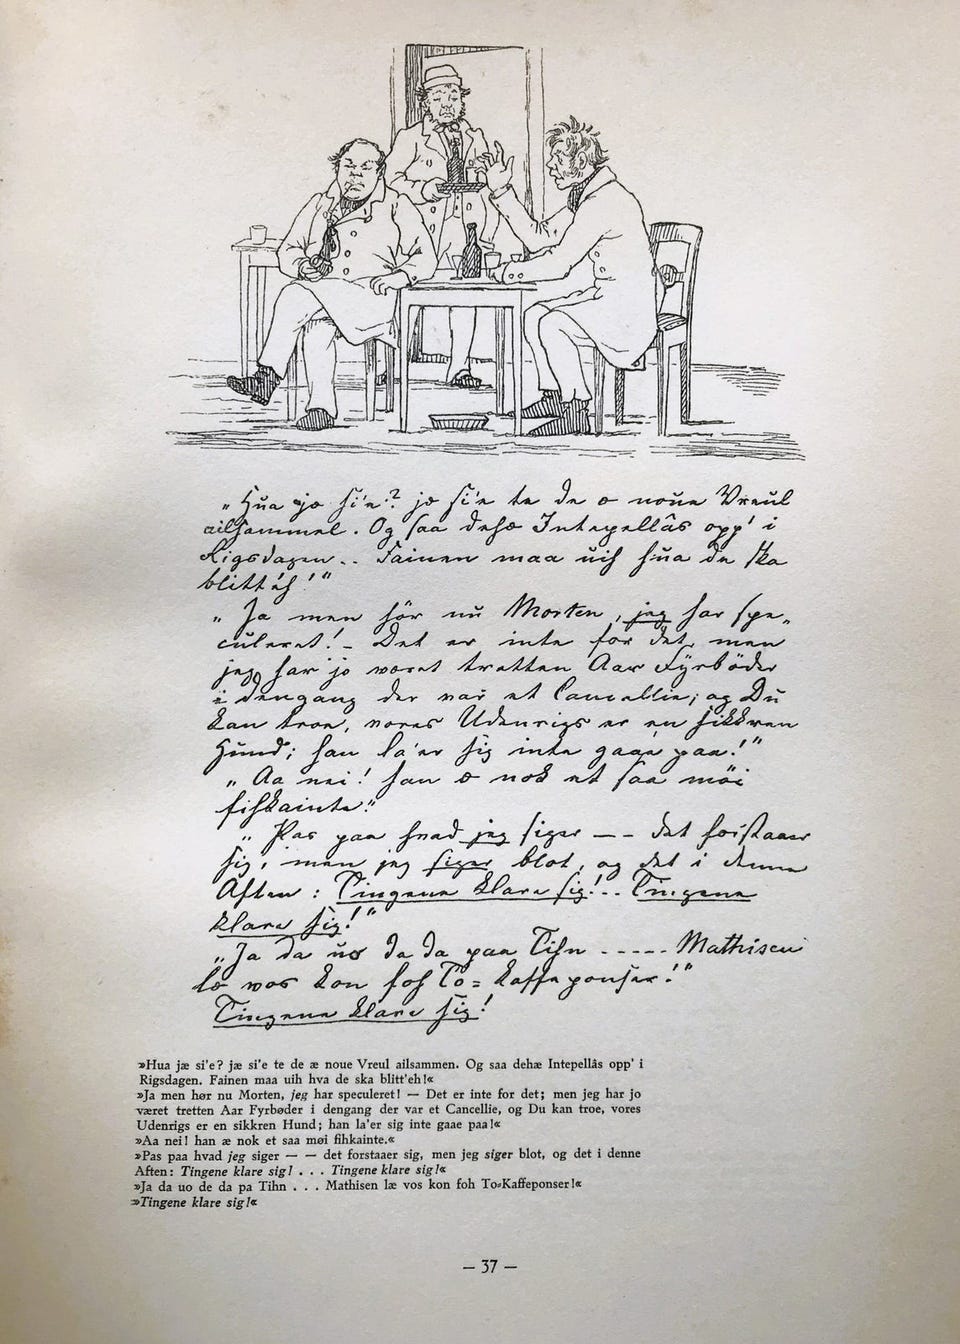 „Hua jæ si'e? jæ si'e te de æ noue Vreul
ailsammel. Og saa dehæ Intepellâs opp' i
Rigsdagen.. Fainen maa uih hua de ska
blitt'eh!“
„Ja men hör nu Morten, jeg har spe-
culeret! – Det er inte for det, men
jeg har jo været tretten Aar Fyrböder
i dengang der var et Cancellie; og Du
kan troe, vores Udenrigs er en sikkren
Hund; han la'er sig inte gaae paa!“
„Aa nei! han æ nok et saa möi
fihkainte.“
„Pas paa hvad jeg siger – – det foistaaer
sig, men jeg siger blot, og det i denne
Aften: Tingene klare sig!.. Tingene
klare sig!“
„Ja da uo de da paa Tihn ----- Mathisen
læ vos kon foh To=Kaffeponser!“
Tingene klare sig!
»Hua jæ si'e? jæ si'e te de æ noue Vreul ailsammen. Og saa dehæ Intepellâs opp' i
Rigsdagen. Fainen maa uih hva de ska blitt'eh!«
»Ja men hør nu Morten, jeg har speculeret! — Det er inte for det; men jeg har jo
været tretten Aar Fyrbøder i dengang der var et Cancellie, og Du kan troe, vores
Udenrigs er en sikkren Hund; han la'er sig inte gaae paa!«
»Aa nei! han æ nok et saa møi fihkainte.«
»Pas paa hvad jeg siger — — det forstaaer sig, men jeg siger blot, og det i denne
Aften: Tingene klare sig! . . . Tingene klare sig!«
»Ja da uo de da pa Tihn . . . Mathisen læ vos kon foh To=Kaffeponser!«
»Tingene klare sig!«
— 37 —